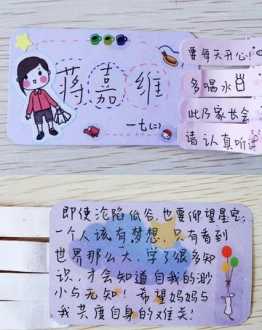 蒋嘉维
一七(二)
要每天开心!
多喝水
此乃家长会
请认真听讲
即使沦陷低谷,也要仰望星空;
一个人该有梦想,只有看到
世界那么大,学了很多知
识,才会知道自我的渺
小与无知!希望妈妈与
我共度自身的难关!